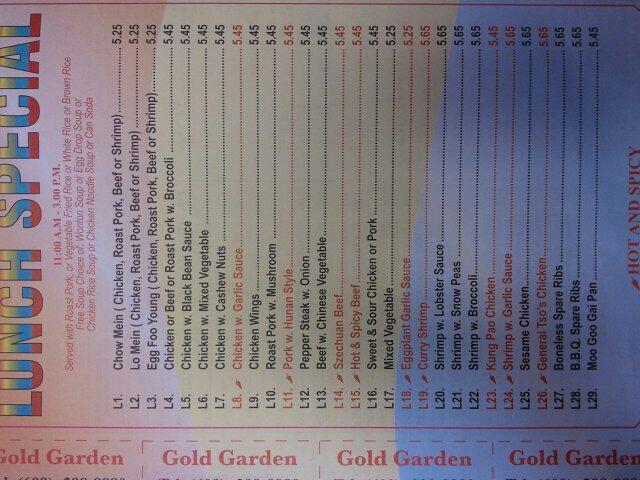 LUNCH SPECIAL
11:00 A.M - 3.00 P.M.
Served with Roast Pork, or Vegetable Fried Rice or White Rice or Brown Rice
Free Soup Choice of: Wonton Soup or Egg Drop Soup or
Chicken Rice Soup or Chicken Noodle Soup or Can Soda
L1. Chow Mein ( Chicken, Roast Pork, Beef or Shrimp) 5.25
L2. Lo Mein ( Chicken, Roast Pork, Beef or Shrimp) 5.25
L3. Egg Foo Young ( Chicken, Roast Pork, Beef or Shrimp) 5.25
L4. Chicken or Beef or Roast Pork w. Broccoli 5.45
L5. Chicken w. Black Bean Sauce 5.45
L6. Chicken w. Mixed Vegetable 5.45
L7. Chicken w. Cashew Nuts 5.45
L8. Chicken w. Garlic Sauce 5.45
L9. Chicken Wings 5.45
L10. Roast Pork w. Mushroom 5.45
L11. Pork w. Hunan Style 5.45
L12. Pepper Steak w. Onion 5.45
L13. Beef w. Chinese Vegetable 5.45
L14. Szechuan Beef 5.45
L15. Hot & Spicy Beef 5.45
L16. Sweet & Sour Chicken or Pork 5.45
L17. Mixed Vegetable 5.25
L18. Eggplant Garlic Sauce 5.25
L19. Curry Shrimp 5.65
L20. Shrimp w. Lobster Sauce 5.65
L21. Shrimp w. Snow Peas 5.65
L22. Shrimp w. Broccoli 5.65
L23. Kung Pao Chicken 5.45
L24. Shrimp w. Garlic Sauce 5.65
L25. Sesame Chicken 5.65
L26. General Tso's Chicken 5.65
L27. Boneless Spare Ribs 5.65
L28. B.B.Q. Spare Ribs 5.65
L29. Moo Goo Gai Pan 5.45
HOT AND SPICY
Gold Garden
Gold Garden
Gold Garden
Gold Garden